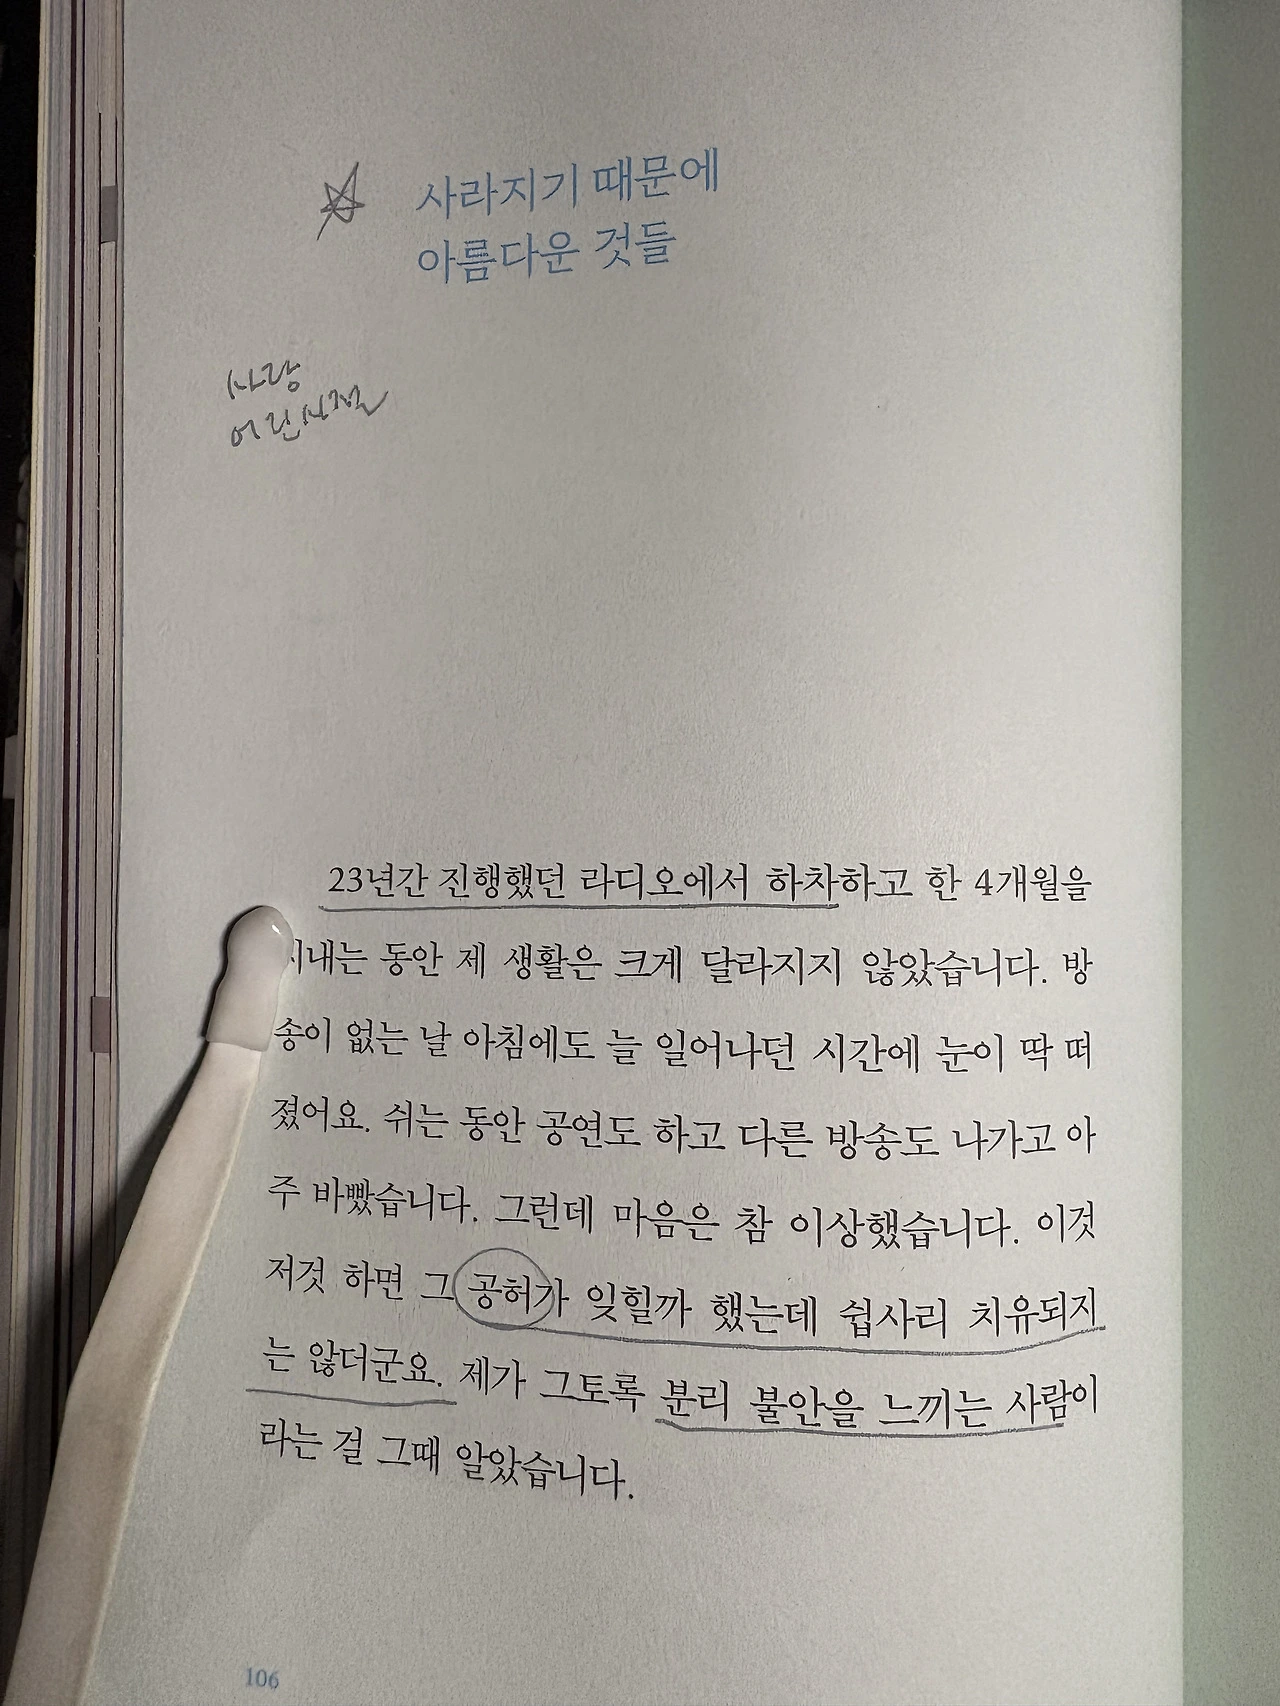 사라지기 때문에
아름다운 것들
사랑
어린시절
23년간 진행했던 라디오에서 하차하고 한 4개월을
지내는 동안 제 생활은 크게 달라지지 않았습니다. 방
송이 없는 날 아침에도 늘 일어나던 시간에 눈이 딱 떠
졌어요. 쉬는 동안 공연도 하고 다른 방송도 나가고 아
주 바빴습니다. 그런데 마음은 참 이상했습니다. 이것
저것 하면 그 공허가 잊힐까 했는데 쉽사리 치유되지
는 않더군요. 제가 그토록 분리 불안을 느끼는 사람이
라는 걸 그때 알았습니다.
106